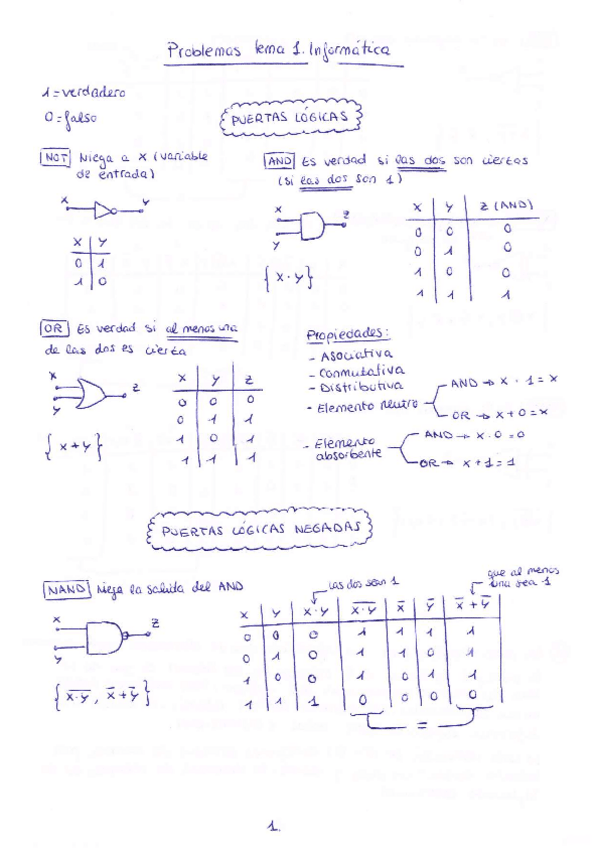 Problemas tema 1. Informática
1 = verdadero
0 = falso
PUERTAS LÓGICAS
NOT Niega a X (variable
de entrada)
X Y
X Y
0 1
1 0
AND Es verdad si las dos son ciertas
(si las dos son 1)
X
Y
Z
{X·Y}
X Y Z (AND)
0 0 0
0 1 0
1 0 0
1 1 1
OR Es verdad si al menos una
de las dos es cierta
X
Y
Z
{X+Y}
X Y Z
0 0 0
0 1 1
1 0 1
1 1 1
Propiedades:
- Asociativa
- Conmutativa
- Distributiva
- Elemento neutro
AND → X · 1 = X
OR → X + 0 = X
- Elemento
absorbente
AND → X · 0 = 0
OR → X + 1 = 1
PUERTAS LÓGICAS NEGADAS
NAND Niega la salida del AND
X
Y
Z
{X̅·̅Y̅, X̅+Y̅}
las dos sean 1
que al menos
una sea 1
X Y X·Y X̅·̅Y̅ X̅ Y̅ X̅+Y̅
0 0 0 1 1 1 1
0 1 0 1 1 0 1
1 0 0 1 0 1 1
1 1 1 0 0 0 0
=
1.